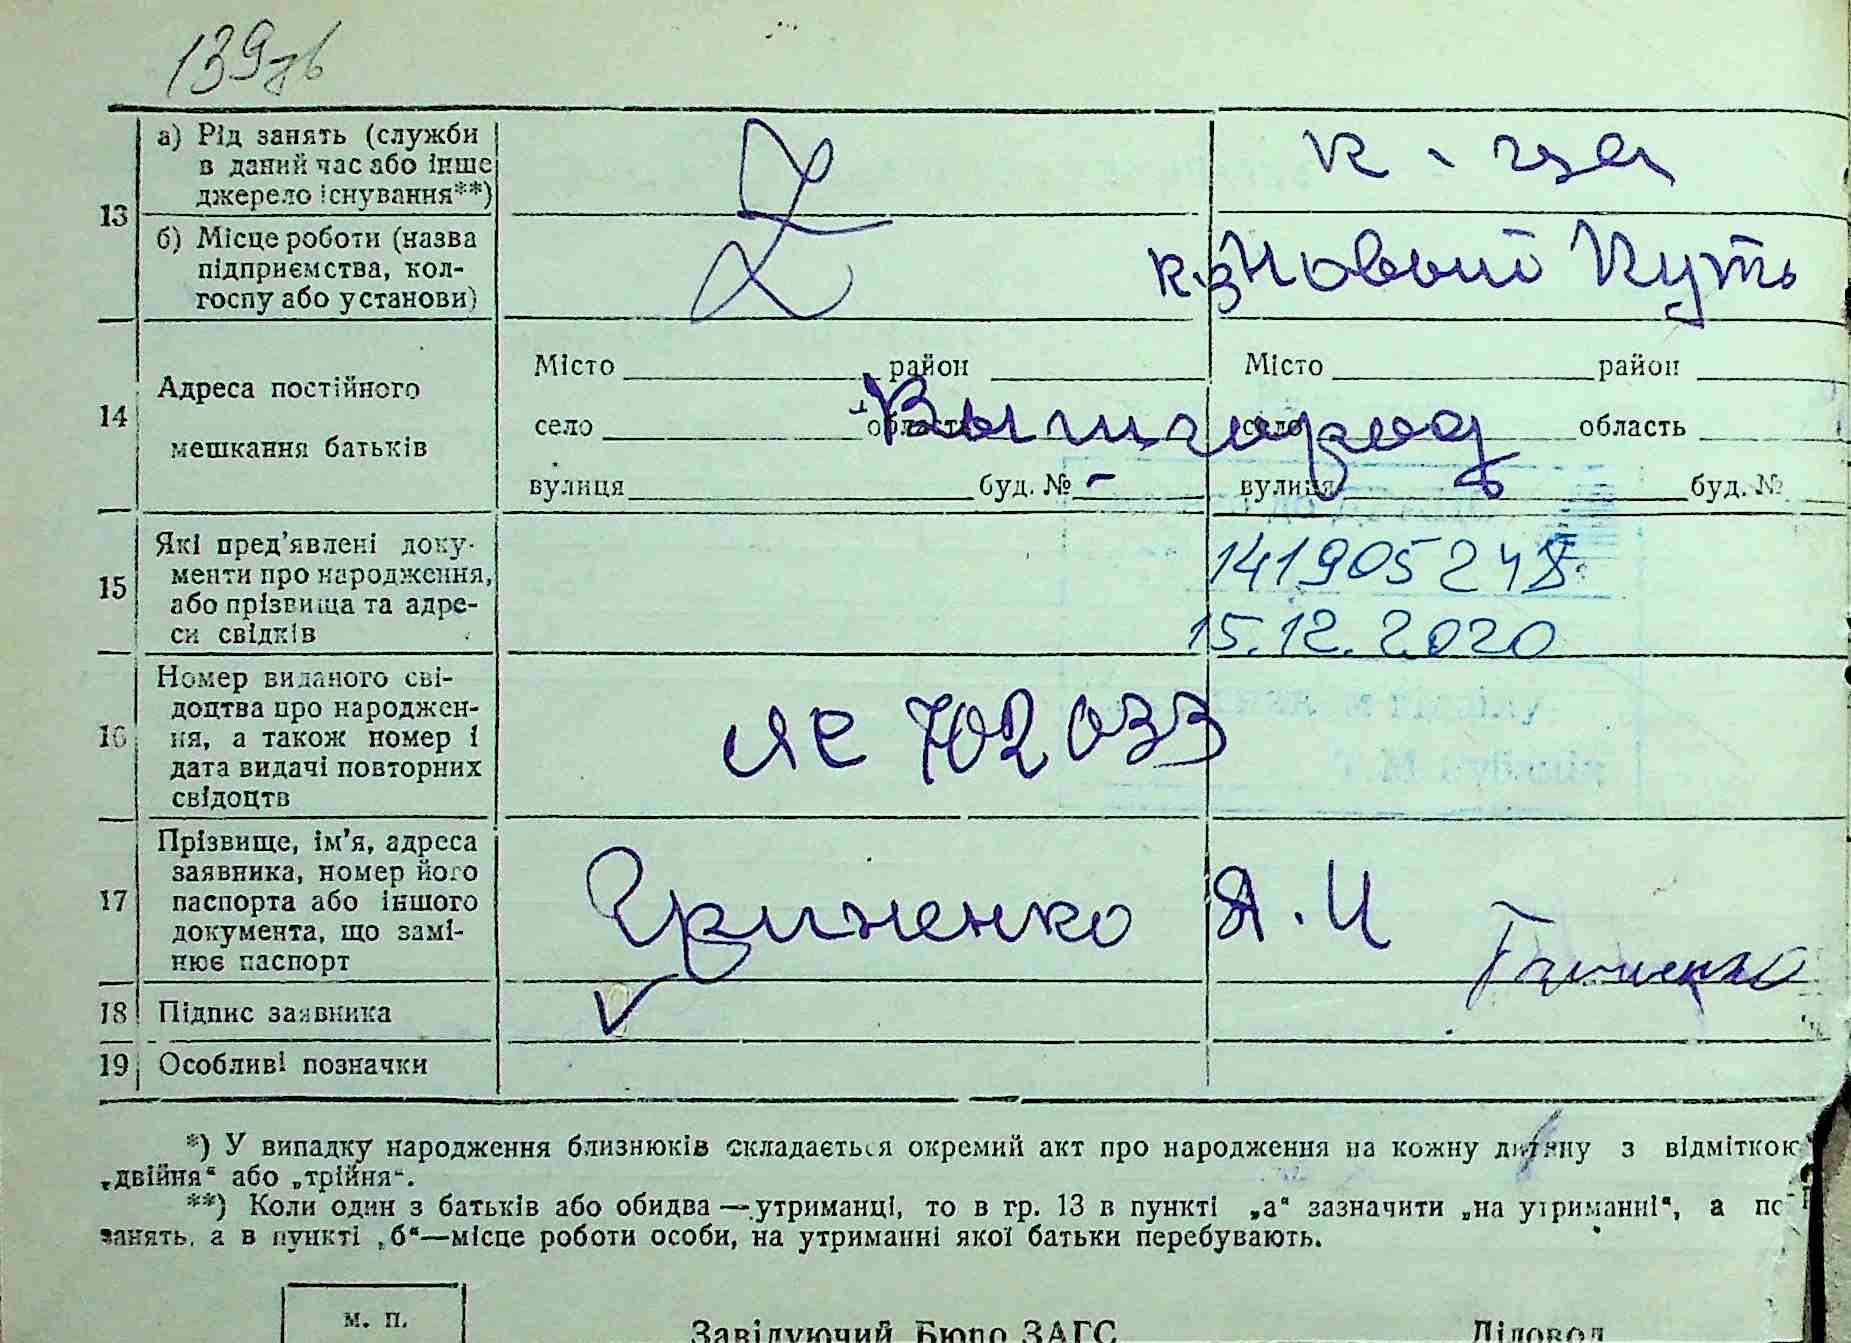 139 зв
13
а) Рід занять (служби
в даний час або інше
джерело існування**)
к - ца
б) Місце роботи (назва
підприємства, кол-
госпу або установи)
к-з Новый Путь
14
Адреса постійного
мешкання батьків
Місто район Місто район
село область село область
Вышгород
вулиця буд. № - вулиця буд. №
15
Які пред’явлені доку-
менти про народження,
або прізвища та адре-
си свідків
141905248
15.12.2020
16
Номер виданого сві-
доцтва про народжен-
ня, а також номер і
дата видачі повторних
свідоцтв
ЯС 702033
17
Прізвище, ім’я, адреса
заявника, номер його
паспорта або іншого
документа, що замі-
нює паспорт
Гриненко Я. И
18 Підпис заявника
19 Особливі позначки
*) У випадку народження близнюків складається окремий акт про народження на кожну дитину з відміткою
„двійня“ або „трійня“.
**) Коли один з батьків або обидва — утриманці, то в гр. 13 в пункті „а“ зазначити „на утриманні“, а
занять, а в пункті „б“—місце роботи особи, на утриманні якої батьки перебувають.
м. п.
Завідуючий Бюро ЗАГС Діловод